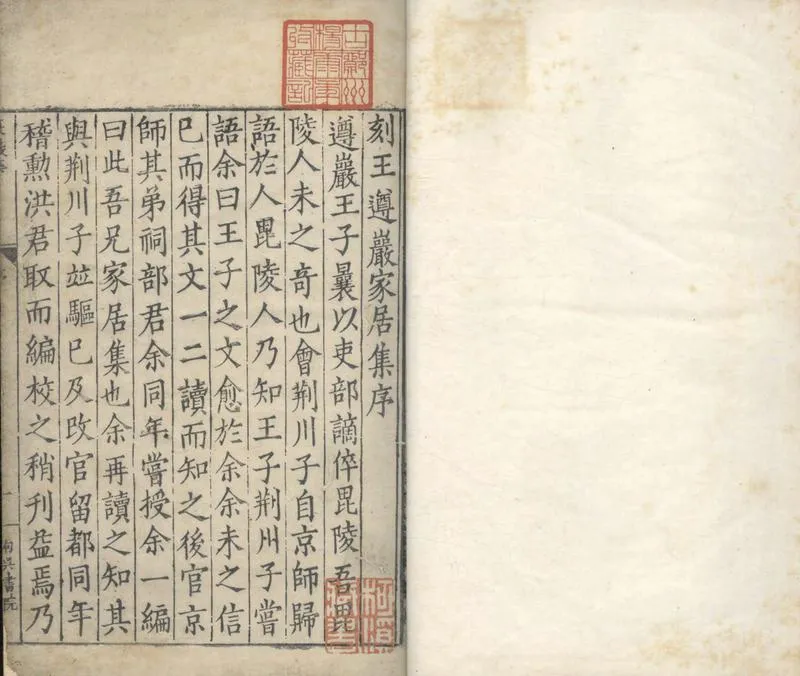 刻王遵巖家居集序
遵巖王子曩以吏部謫倅毘陵吾毘
陵人未之奇也會荆川子自京師歸
語於人毘陵人乃知王子荆州子嘗
語余曰王子之文愈於余余未之信
巳而得其文一二讀而知之後官京
師其弟祠部君余同年嘗授余一編
曰此吾兄家居集也余再讀之知其
與荆川子竝驅巳及改官留都同年
稽勲洪君取而編校之稍刊益焉乃
句吳書院